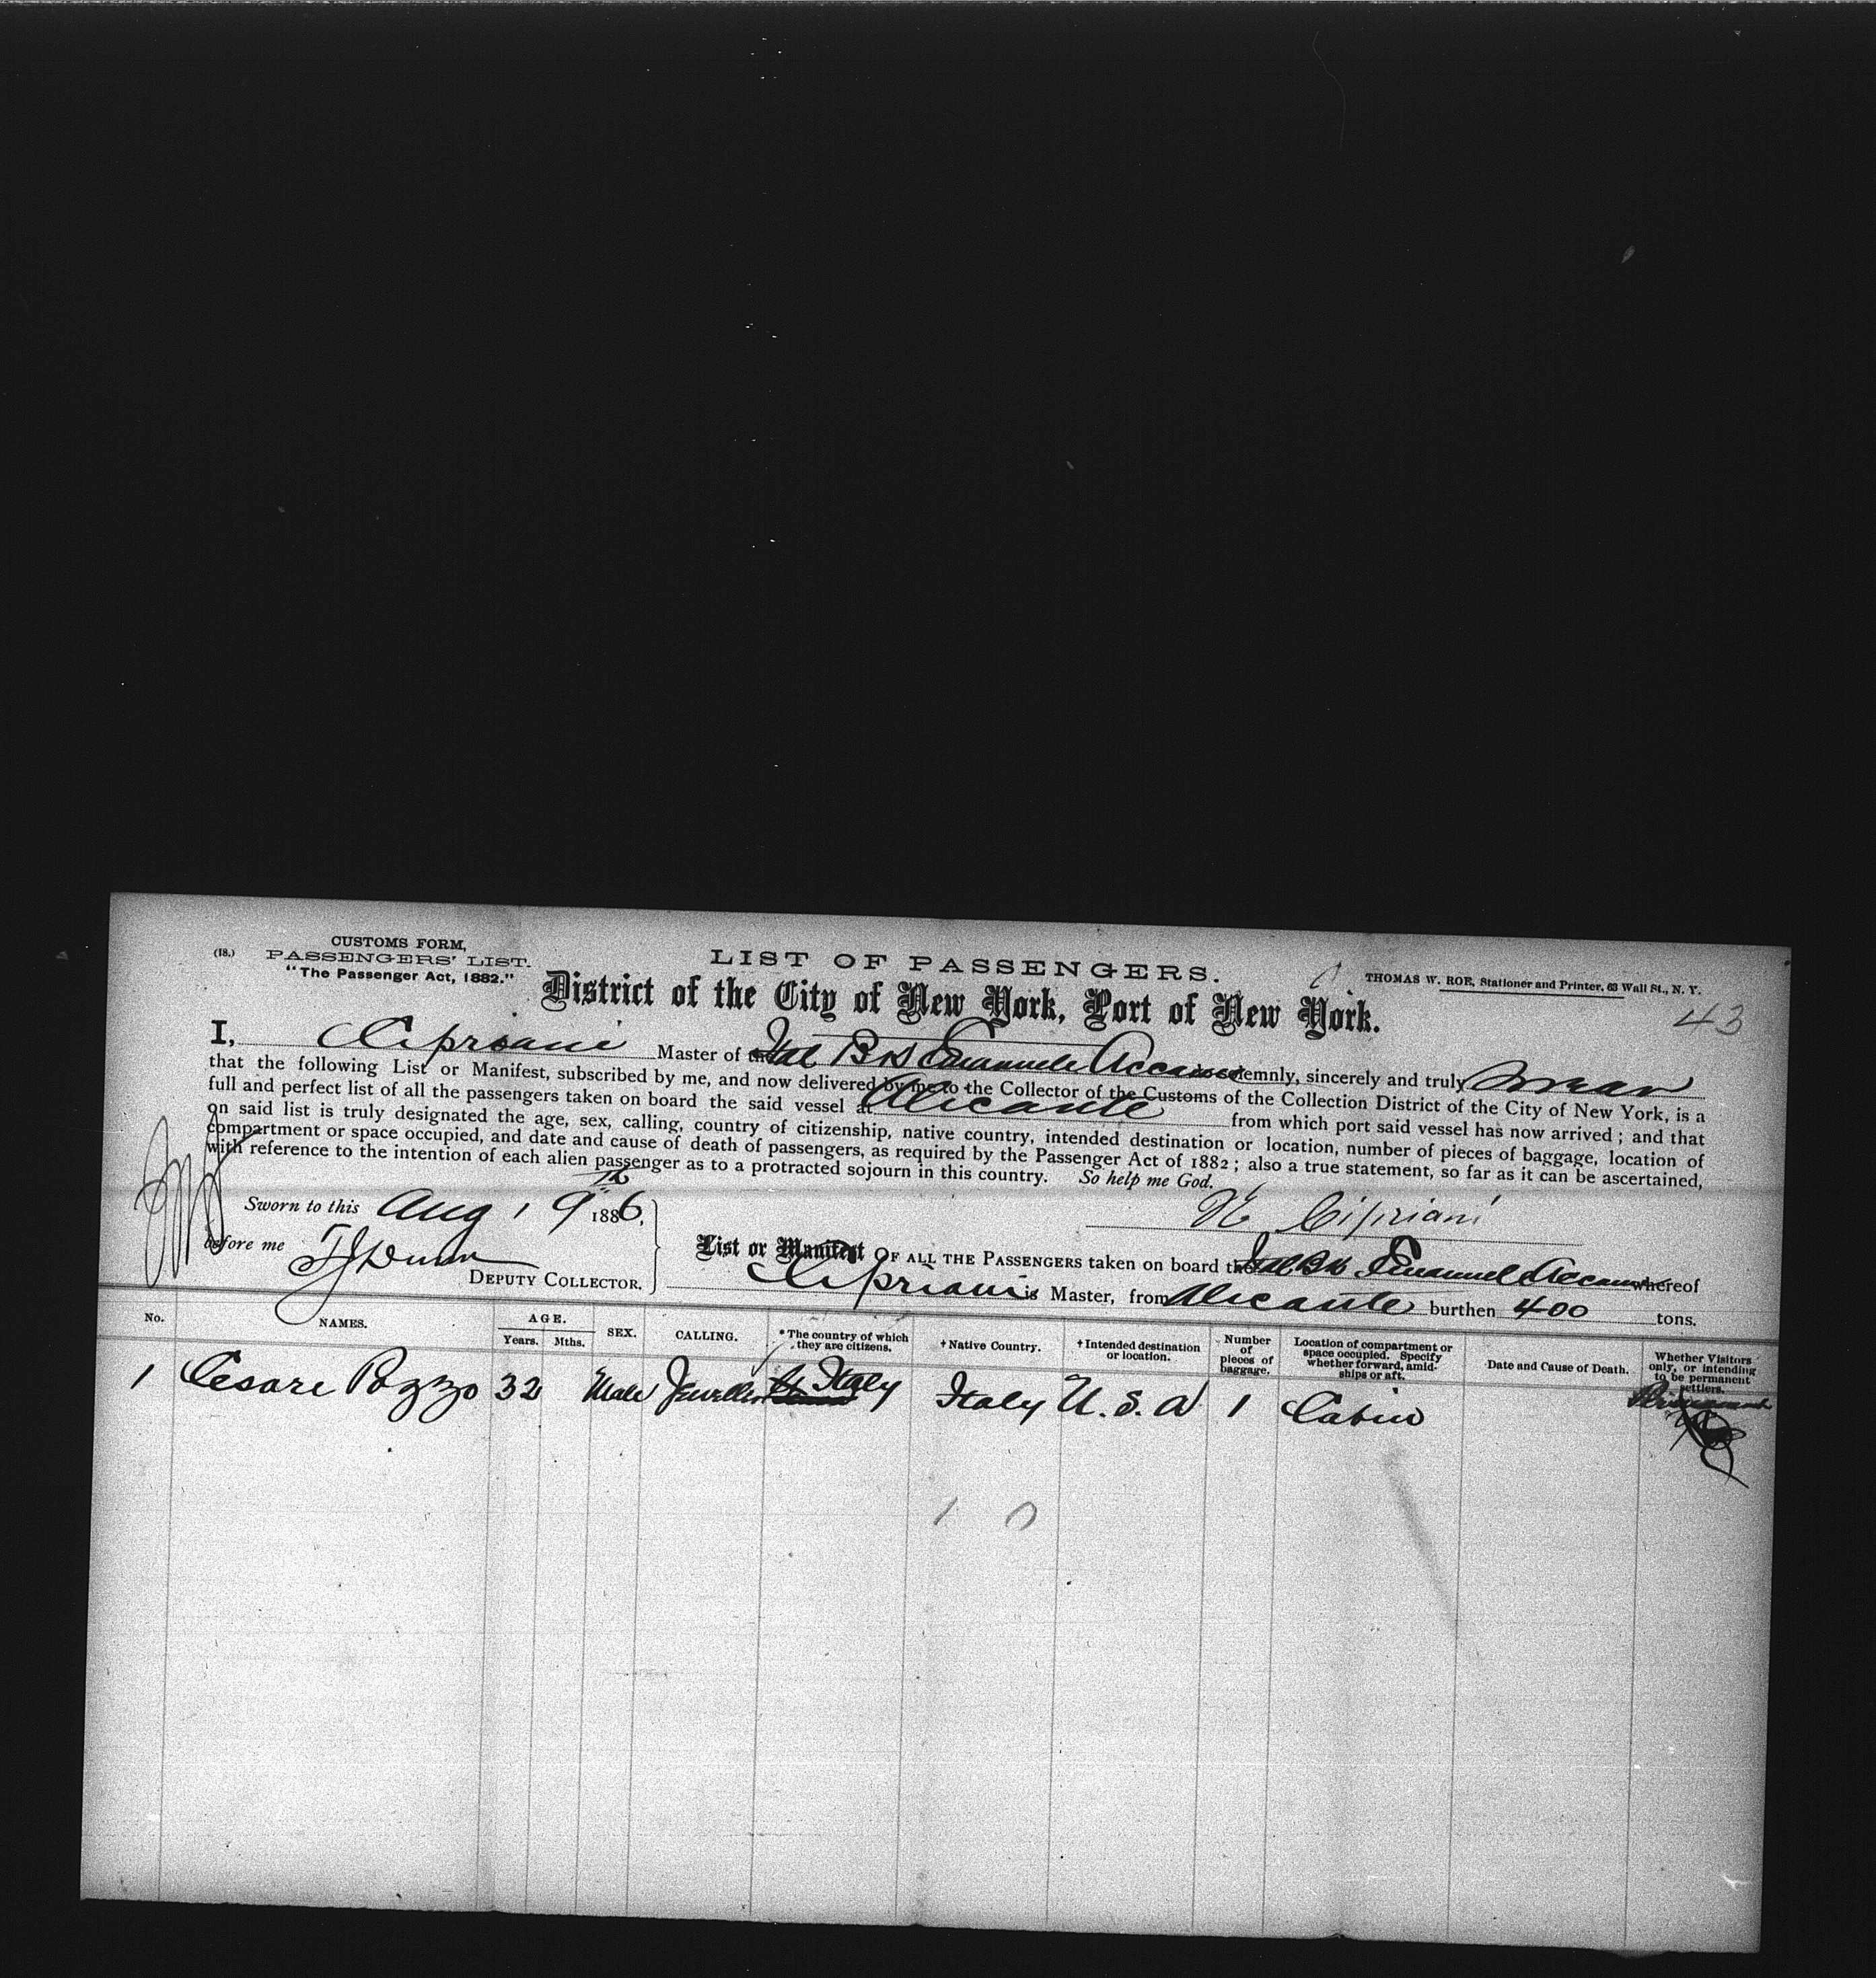 (18.) CUSTOMS FORM,
PASSENGERS' LIST.
"The Passenger Act, 1882."
LIST OF PASSENGERS.
THOMAS W. ROE, Stationer and Printer, 63 Wall St., N. Y.
District of the City of New York, Port of New York.
43
I, Cipriani Master of the Ital Bk Emanuele Accame solemnly, sincerely and truly swear
that the following List or Manifest, subscribed by me, and now delivered by me to the Collector of the Customs of the Collection District of the City of New York, is a
full and perfect list of all the passengers taken on board the said vessel at Alicante from which port said vessel has now arrived; and that
on said list is truly designated the age, sex, calling, country of citizenship, native country, intended destination or location, number of pieces of baggage, location of
compartment or space occupied, and date and cause of death of passengers, as required by the Passenger Act of 1882; also a true statement, so far as it can be ascertained,
with reference to the intention of each alien passenger as to a protracted sojourn in this country. So help me God.
Sworn to this Aug 9 1886,
Cipriani
before me
DEPUTY COLLECTOR.
List or Manifest OF ALL THE PASSENGERS taken on board the Ital Bk Emanuele Accame whereof
Cipriani is Master, from Alicante burthen 400 tons.
No. NAMES. AGE. Years. Mths. SEX. CALLING. *The country of which they are citizens. †Native Country. †Intended destination or location. Number of pieces of baggage. Location of compartment or space occupied. Specify whether forward, amidships or aft. Date and Cause of Death. Whether Visitors only, or intending to be permanent settlers.
1 Cesare Pozzo 32 Male Jeweller Italy Italy U.S.A 1 Cabin
1 0